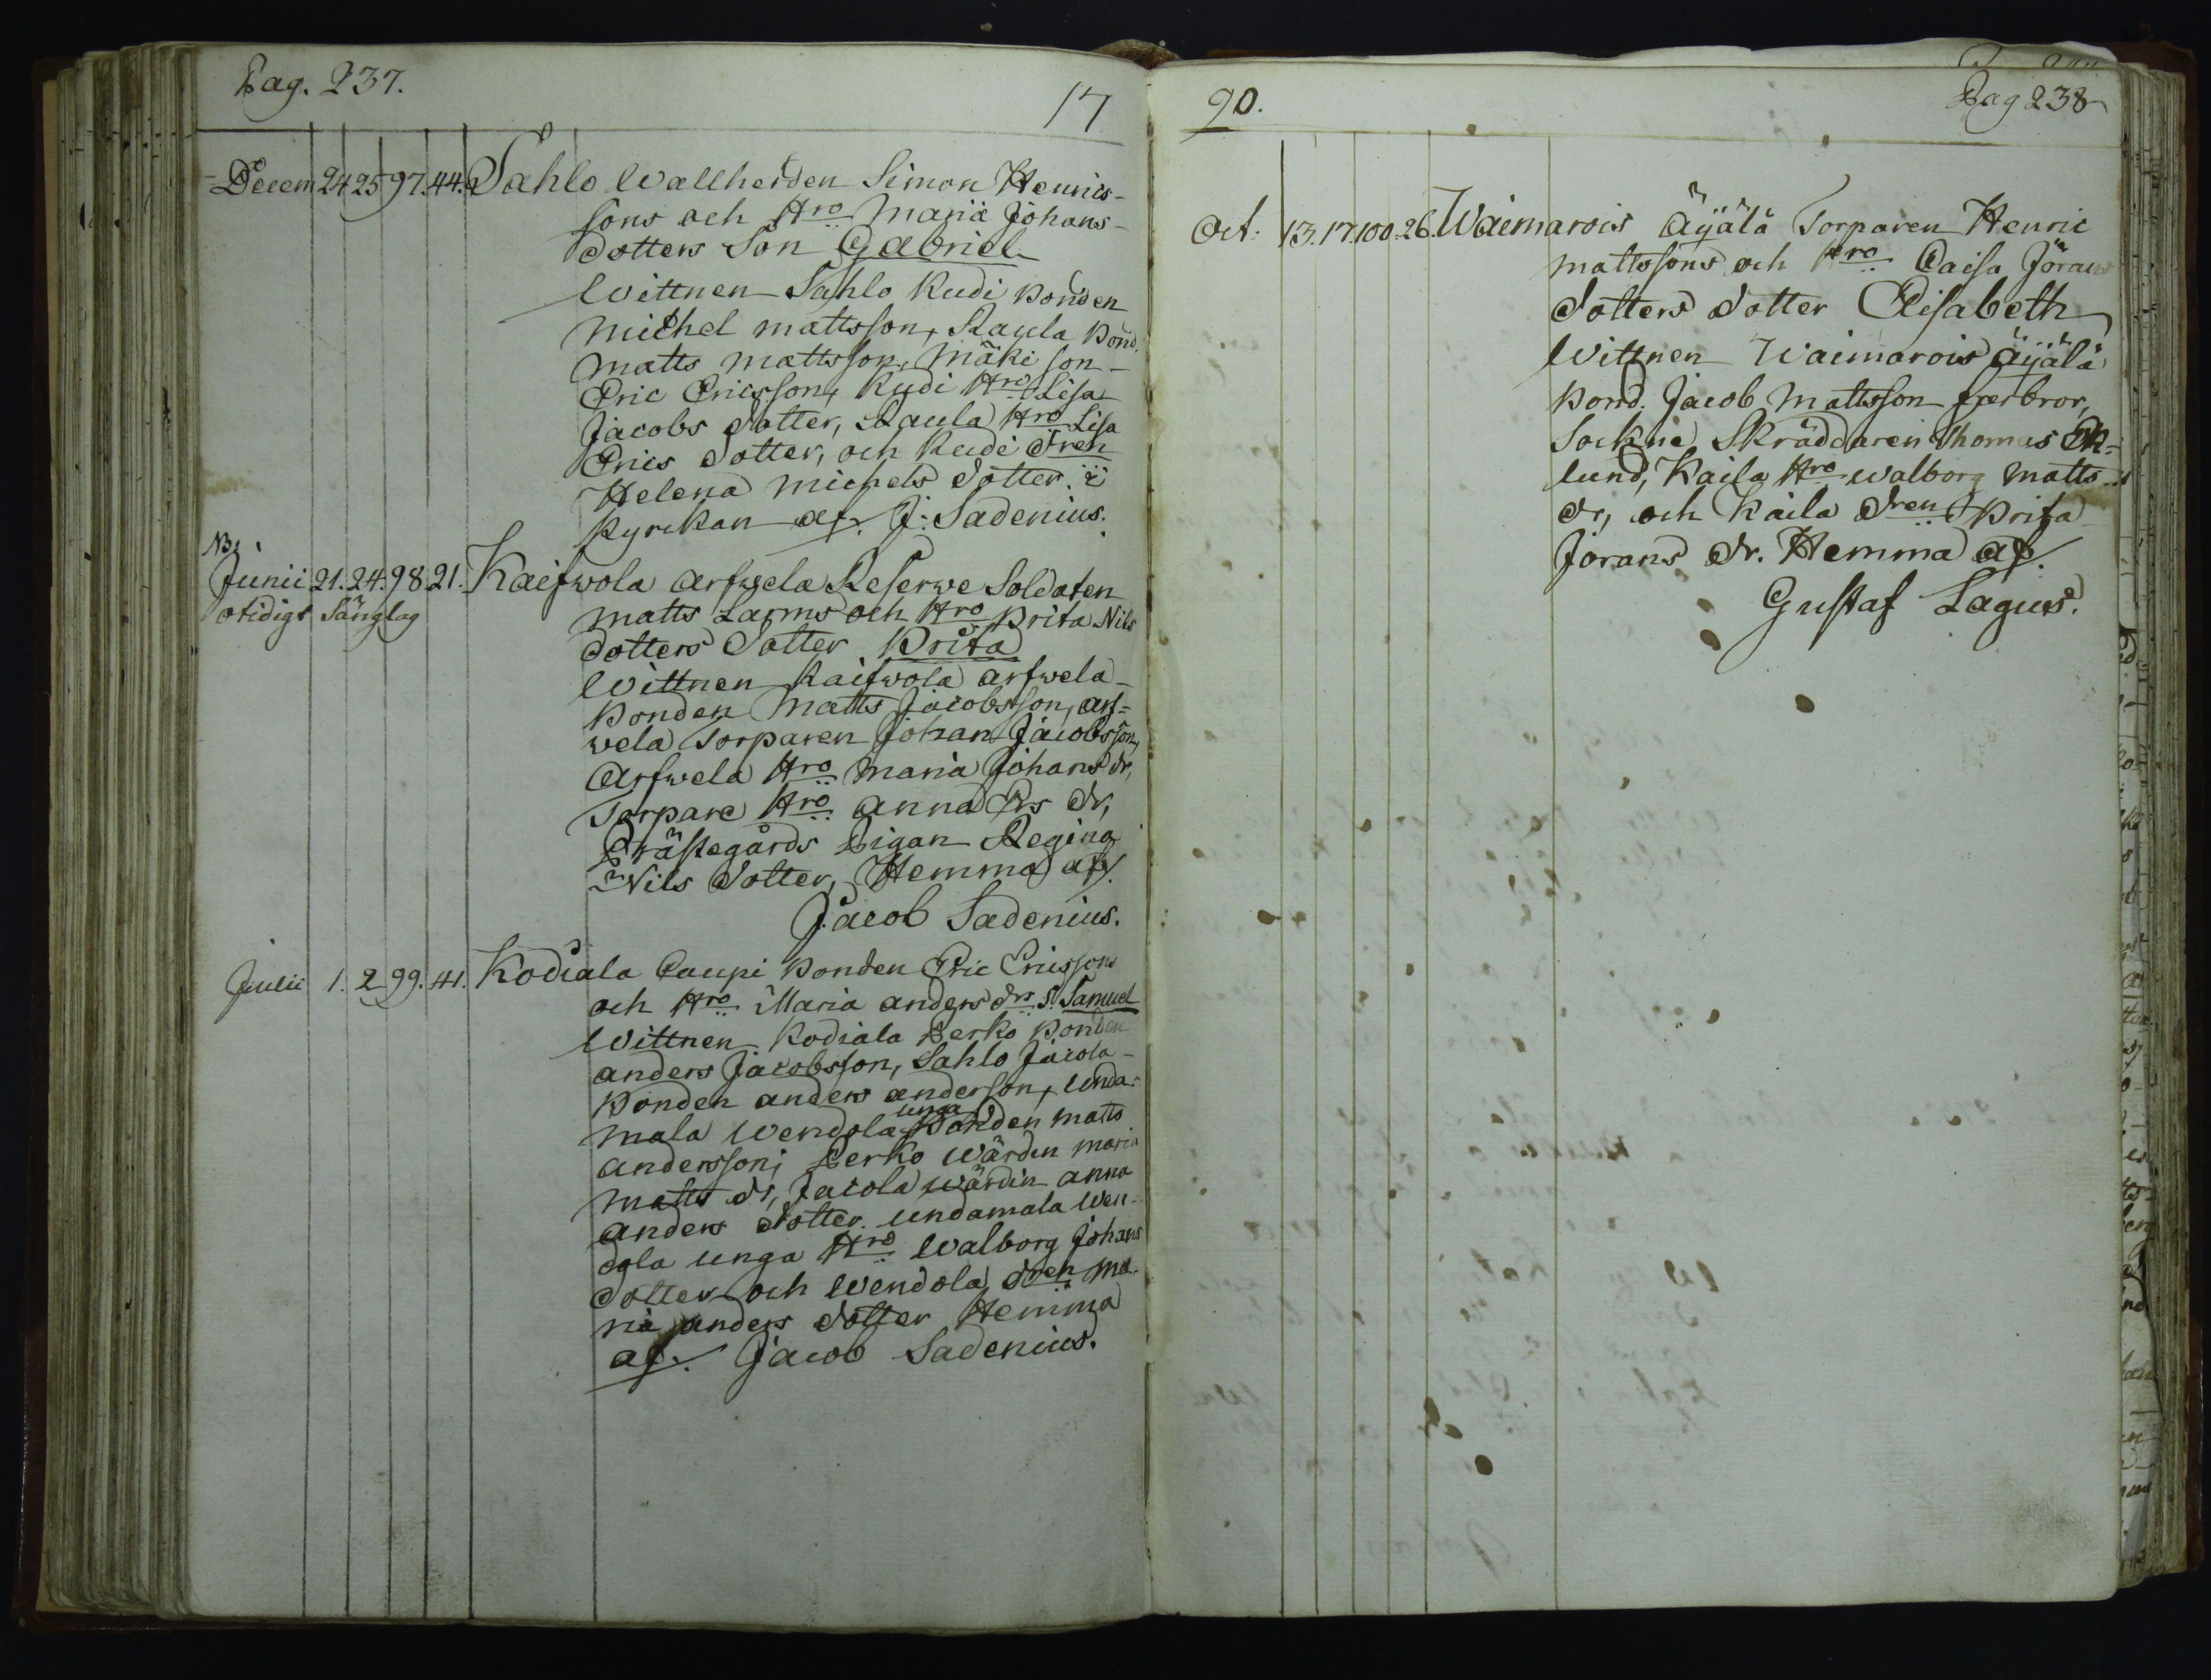 Pag. 237.
17
Decem 24 25 97. 44. Sahlo Wallherden Simon Henrics-
sons och Hro Maria Johans-
dotters Son Gabriel
Wittnen Sahlo Rudi bonden
Michel Mattsson, Raula bond.
Matts Mattsson, Mäki son
Eric Ericsson, Rudi Hro Lisa
Jacobs dotter, Raula Hro Lisa
Erics dotter, och Rudi dren
Helena Michels dotter. i
kyrckan af. J: Sadenius.
NB.
Junii 21. 24. 98 21. Kaifwola Arfwela Reserwe Soldaten
otidigt Sänglag
Matts Larms och Hro Brita Nils
dotters dotter Brita
Wittnen Kaifwola Arfwela
bonden Matts Jacobsson, Arf-
wela Torparen Johan Jacobsson,
Arfwela Hro Maria Johans dr,
Torpare Hro Anna Ers dr,
Prästegårds Pigan Regina
Nils dotter, Hemma af.
Jacob Sadenius.
Julii 1. 2 99. 41. Kodiala Caupi bonden Eric Ericssons
och Hro Maria Anders drs S. Samuel
Wittnen Kodiala Perko bonden
Anders Jacobsson, Sahlo Jacola
bonden Anders Anderson, Unda-
mala Wendola unga bonden Matts
Andersson, Perko Wärdin Maria
Matts dr, Jacola wärdin Anna
Anders dotter. Undamala Wen-
dola unga Hro Walborg Johans
dotter och Wendola dren Ma-
ria Anders dotter Hemma
af. Jacob Sadenius.
90.
Pag 238
Oct. 13. 17. 100. 26. Waimarois Äyälä Torparen Henric
Mattssons och Hro Caisa Jörans
dotters dotter Elisabeth
Wittnen Waimarois Äyälä
bond. Jacob Mattsson farbror,
Sockne Skräddaren Thomas Ek-
lund, Kaila Hro Walborg Matts
dr, och Kaila dren Brita
Jörans dr. Hemma af.
Gustaf Lagus.